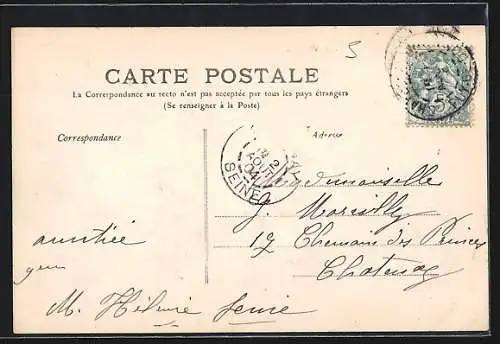 5
CARTE POSTALE
La Correspondance au recto n'est pas acceptée par tous les pays étrangers
(Se renseigner à la Poste)
Correspondance
Adresse
2
AOUT
04
SEINE
5
Mademoiselle
17 Chemin des Princes
Chatenay
amitiée
M. Hélène